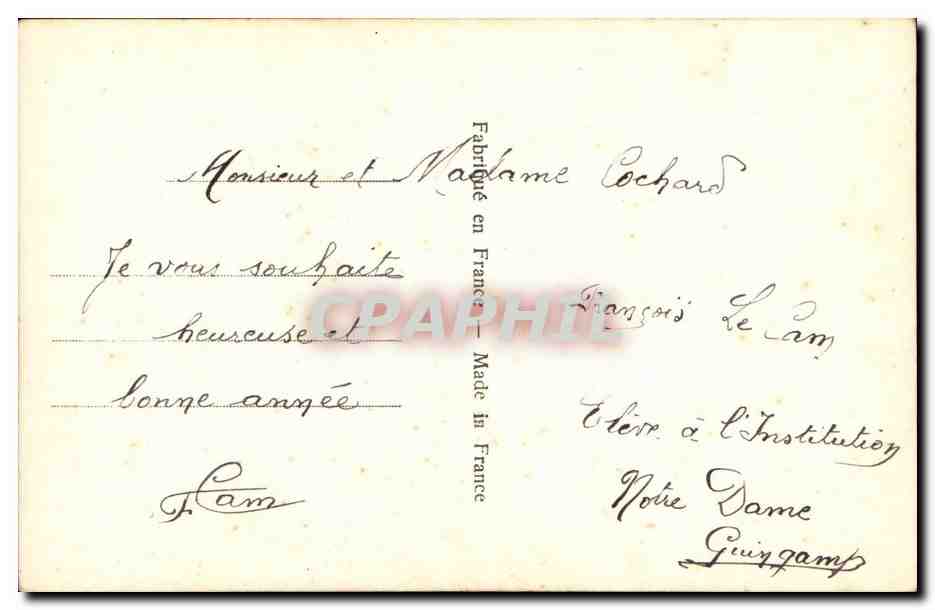 Monsieur et Madame Cochard
Je vous souhaite
heureuse et
bonne année
FCam
Fabriqué en France — Made in France
François Le Cam
Elève à l'Institution
Notre Dame
Guingamp
CPAPHIL